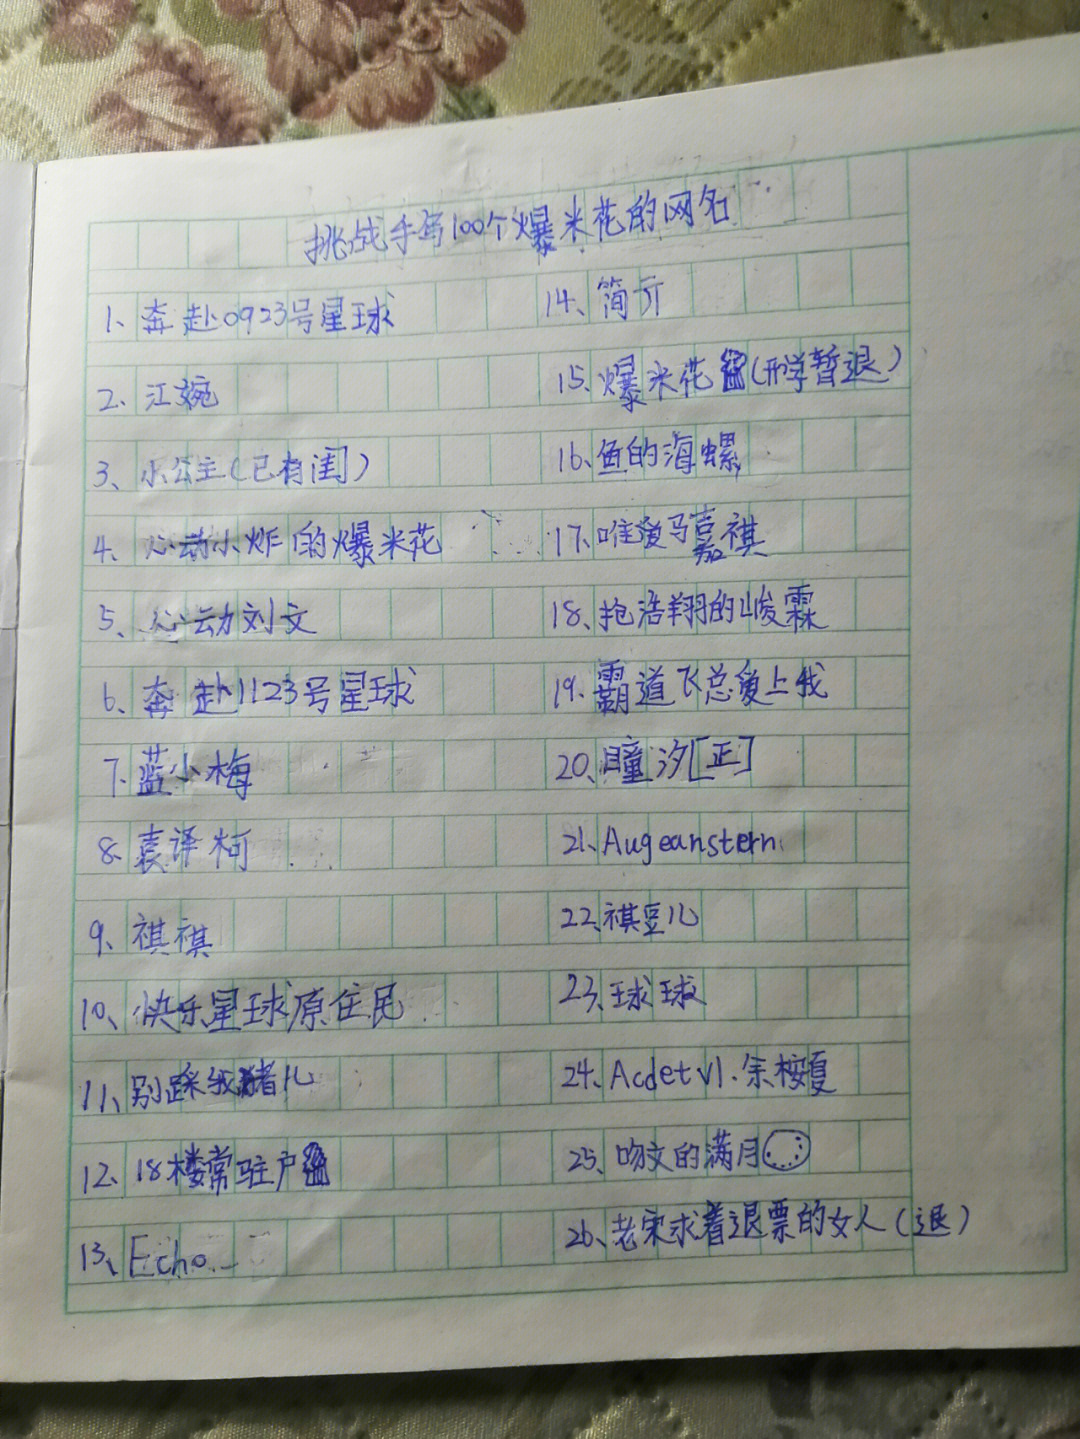 挑战手写100个爆米花的网名
1、奔赴0923号星球
2、江婉
3、小公主(已有闺)
4、心动小炸的爆米花
5、心动刘文
6、奔赴1123号星球
7、蓝小梅
8、袁译柯
9、祺祺
10、快乐星球原住民
11、别踩我猪儿
12、18楼常驻户
13、Echo.
14、简亓
15、爆米花(开学暂退)
16、鱼的海螺
17、唯爱马嘉祺
18、抱浩翔的峻霖
19、霸道飞总爱上我
20、瞳汐[正]
21、Augeanstern
22、祺豆儿
23、球球
24、Acdetvl.余桉夏
25、吻文的满月
26、老宋求着退票的女人(退)